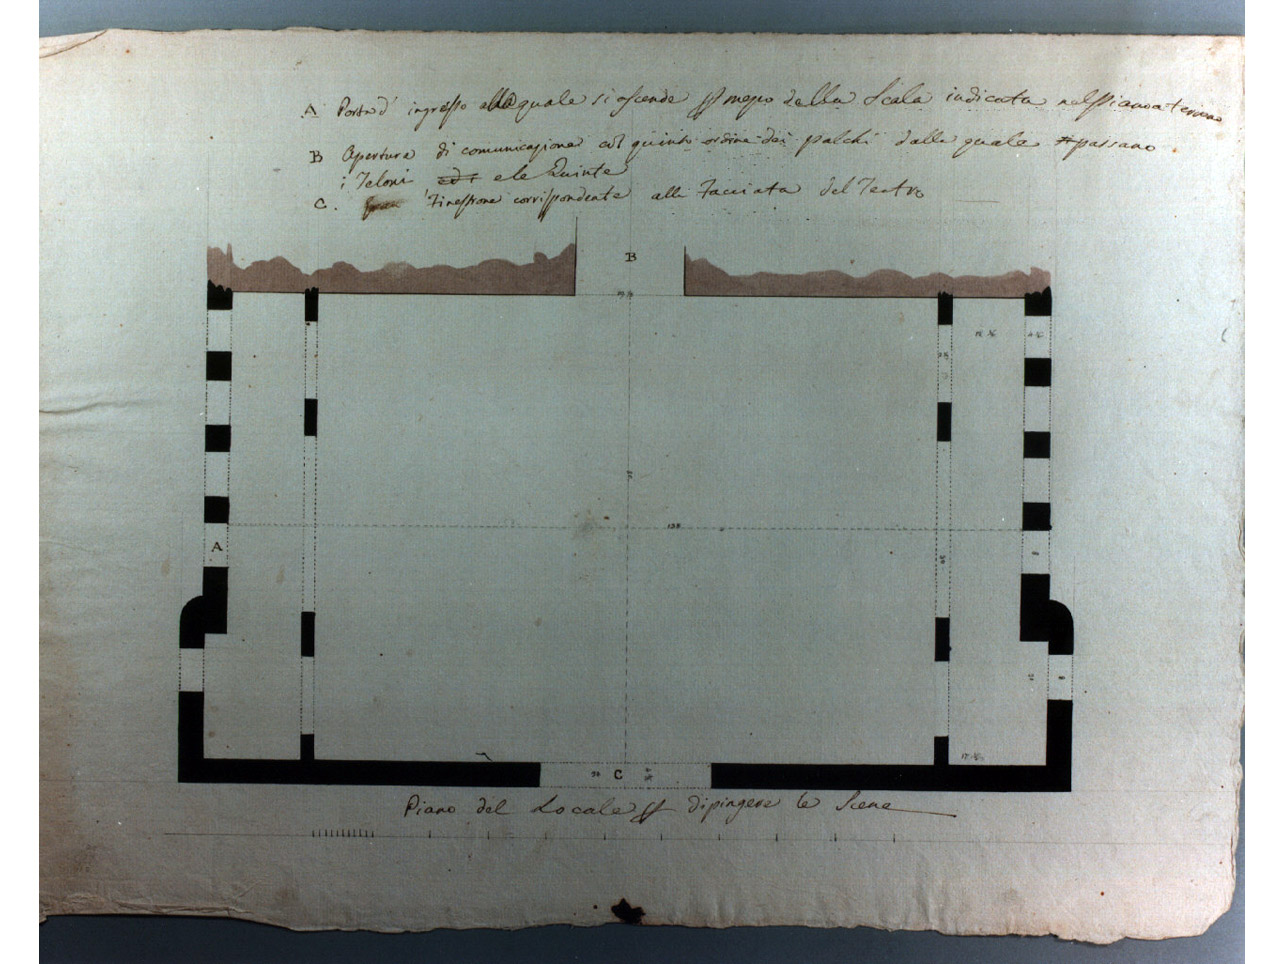 A Porta d' ingresso alla quale si ascende per mezo della Scala indicata nel piano a terreno
B Apertura di comunicazione col quinto ordine dei palchi dalla quale passano
i Teloni ed i e le Quinte
C. Finestrone corrispondente alla Facciata del Teatro
B
A
138
C
Piano del Locale per dipingere le Scene